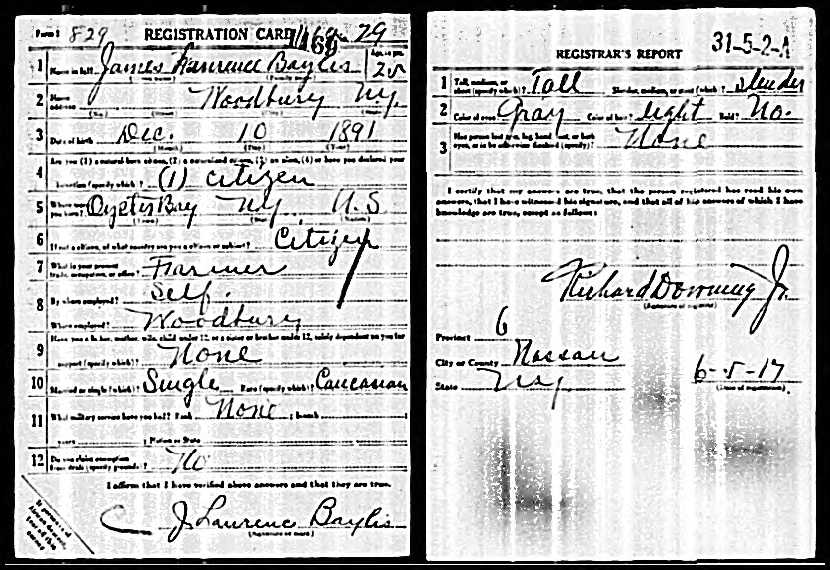 Form 1 829 REGISTRATION CARD 29
1 Name in full James Lawrence Baylis Age, in yrs. 25
2 Home address Woodbury N.Y.
3 Date of birth Dec. 10 1891
Are you (1) a natural born citizen, (2) a naturalized citizen, (3) an alien, (4) or have you declared your
4 intention (specify which)? (1) Citizen
5 Where were you born? Oyster Bay N.Y. U.S.
6 If not a citizen, of what country are you a citizen or subject? Citizen
7 What is your present trade, occupation, or office? Farmer
8 By whom employed? Self.
Where employed? Woodbury
Have you a father, mother, wife, child under 12, or a sister or brother under 12, solely dependent on you for
9 support (specify which)? None
10 Married or single (which)? Single Race (specify which)? Caucasian
11 What military service have you had? Rank None ; branch
years ; Nation or State
12 Do you claim exemption from draft (specify grounds)? No
I affirm that I have verified above answers and that they are true.
J Laurence Baylis
(Signature or mark)
31-5-2-A
REGISTRAR'S REPORT
1 Tall, medium, or short (specify which)? Tall Slender, medium, or stout (which)? Slender
2 Color of eyes? Gray Color of hair? light Bald? No.
3 Has person lost arm, leg, hand, foot, or both eyes, or is he otherwise disabled (specify)? None
I certify that my answers are true, that the person registered has read his own
answers, that I have witnessed his signature, and that all of his answers of which I have
knowledge are true, except as follows:
Richard Downing Jr.
(Signature of registrar)
Precinct 6
City or County Nassau
State N.Y. 6-5-17
(Date of registration)